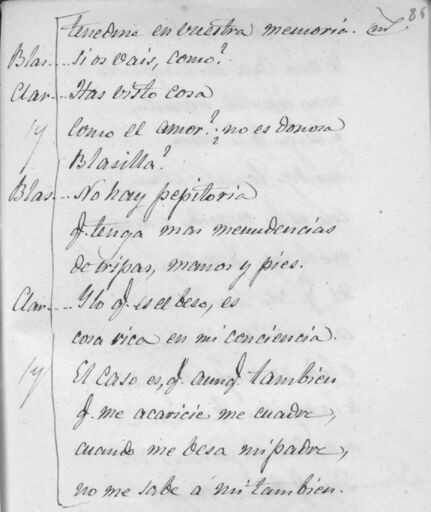 86
tenedme en vuestra memoria.
Blas.... Si os vais, como?
Clar.... Has visto cosa
como el amor? no es donosa
Blasilla?
Blas.... No hay pepitoria
q. tenga mas menudencias
de tripas, manos y pies.
Clar.... Y lo q. es el beso, es
cosa rica en mi conciencia.
El caso es, q. aunq. tambien
q. me acaricie me cuadre,
cuando me besa mi padre,
no me sabe á mi tambien.